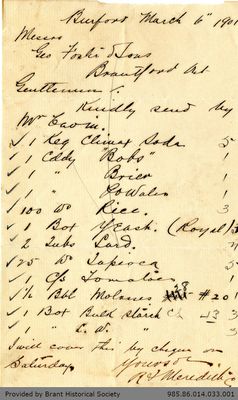 Burford March 6" 1901
Messrs
Geo Foster & Sons
Brantford Ont
Gentlemen:
Kindly send by
Mr
✓ 1 Keg Climax Soda 5
✓ 1 Cddy "Bobs" 1
✓ 1 " Brier 1
✓ 1 " Co Wales 1
✓ 100 lbs Rice. 3
✓ 1 Box Yeast. (Royal)
✓ 2 Tubs Lard.
✓ 25 lbs Tapioca 5
✓ 1 c/s Tomatoes 1
✓ 1½ Bbl Molasses #20 1
✓ 1 Box Bulk Starch 43 3
✓ 1 " 3
I will cover this by cheque on
Saturday. Yours &
Meredith
Provided by Brant Historical Society
985.86.014.033.001